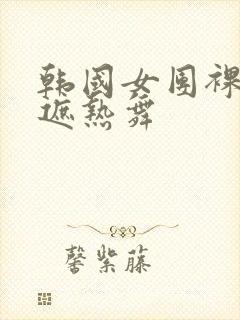 韩国女团裸
遮热舞
馨紫藤